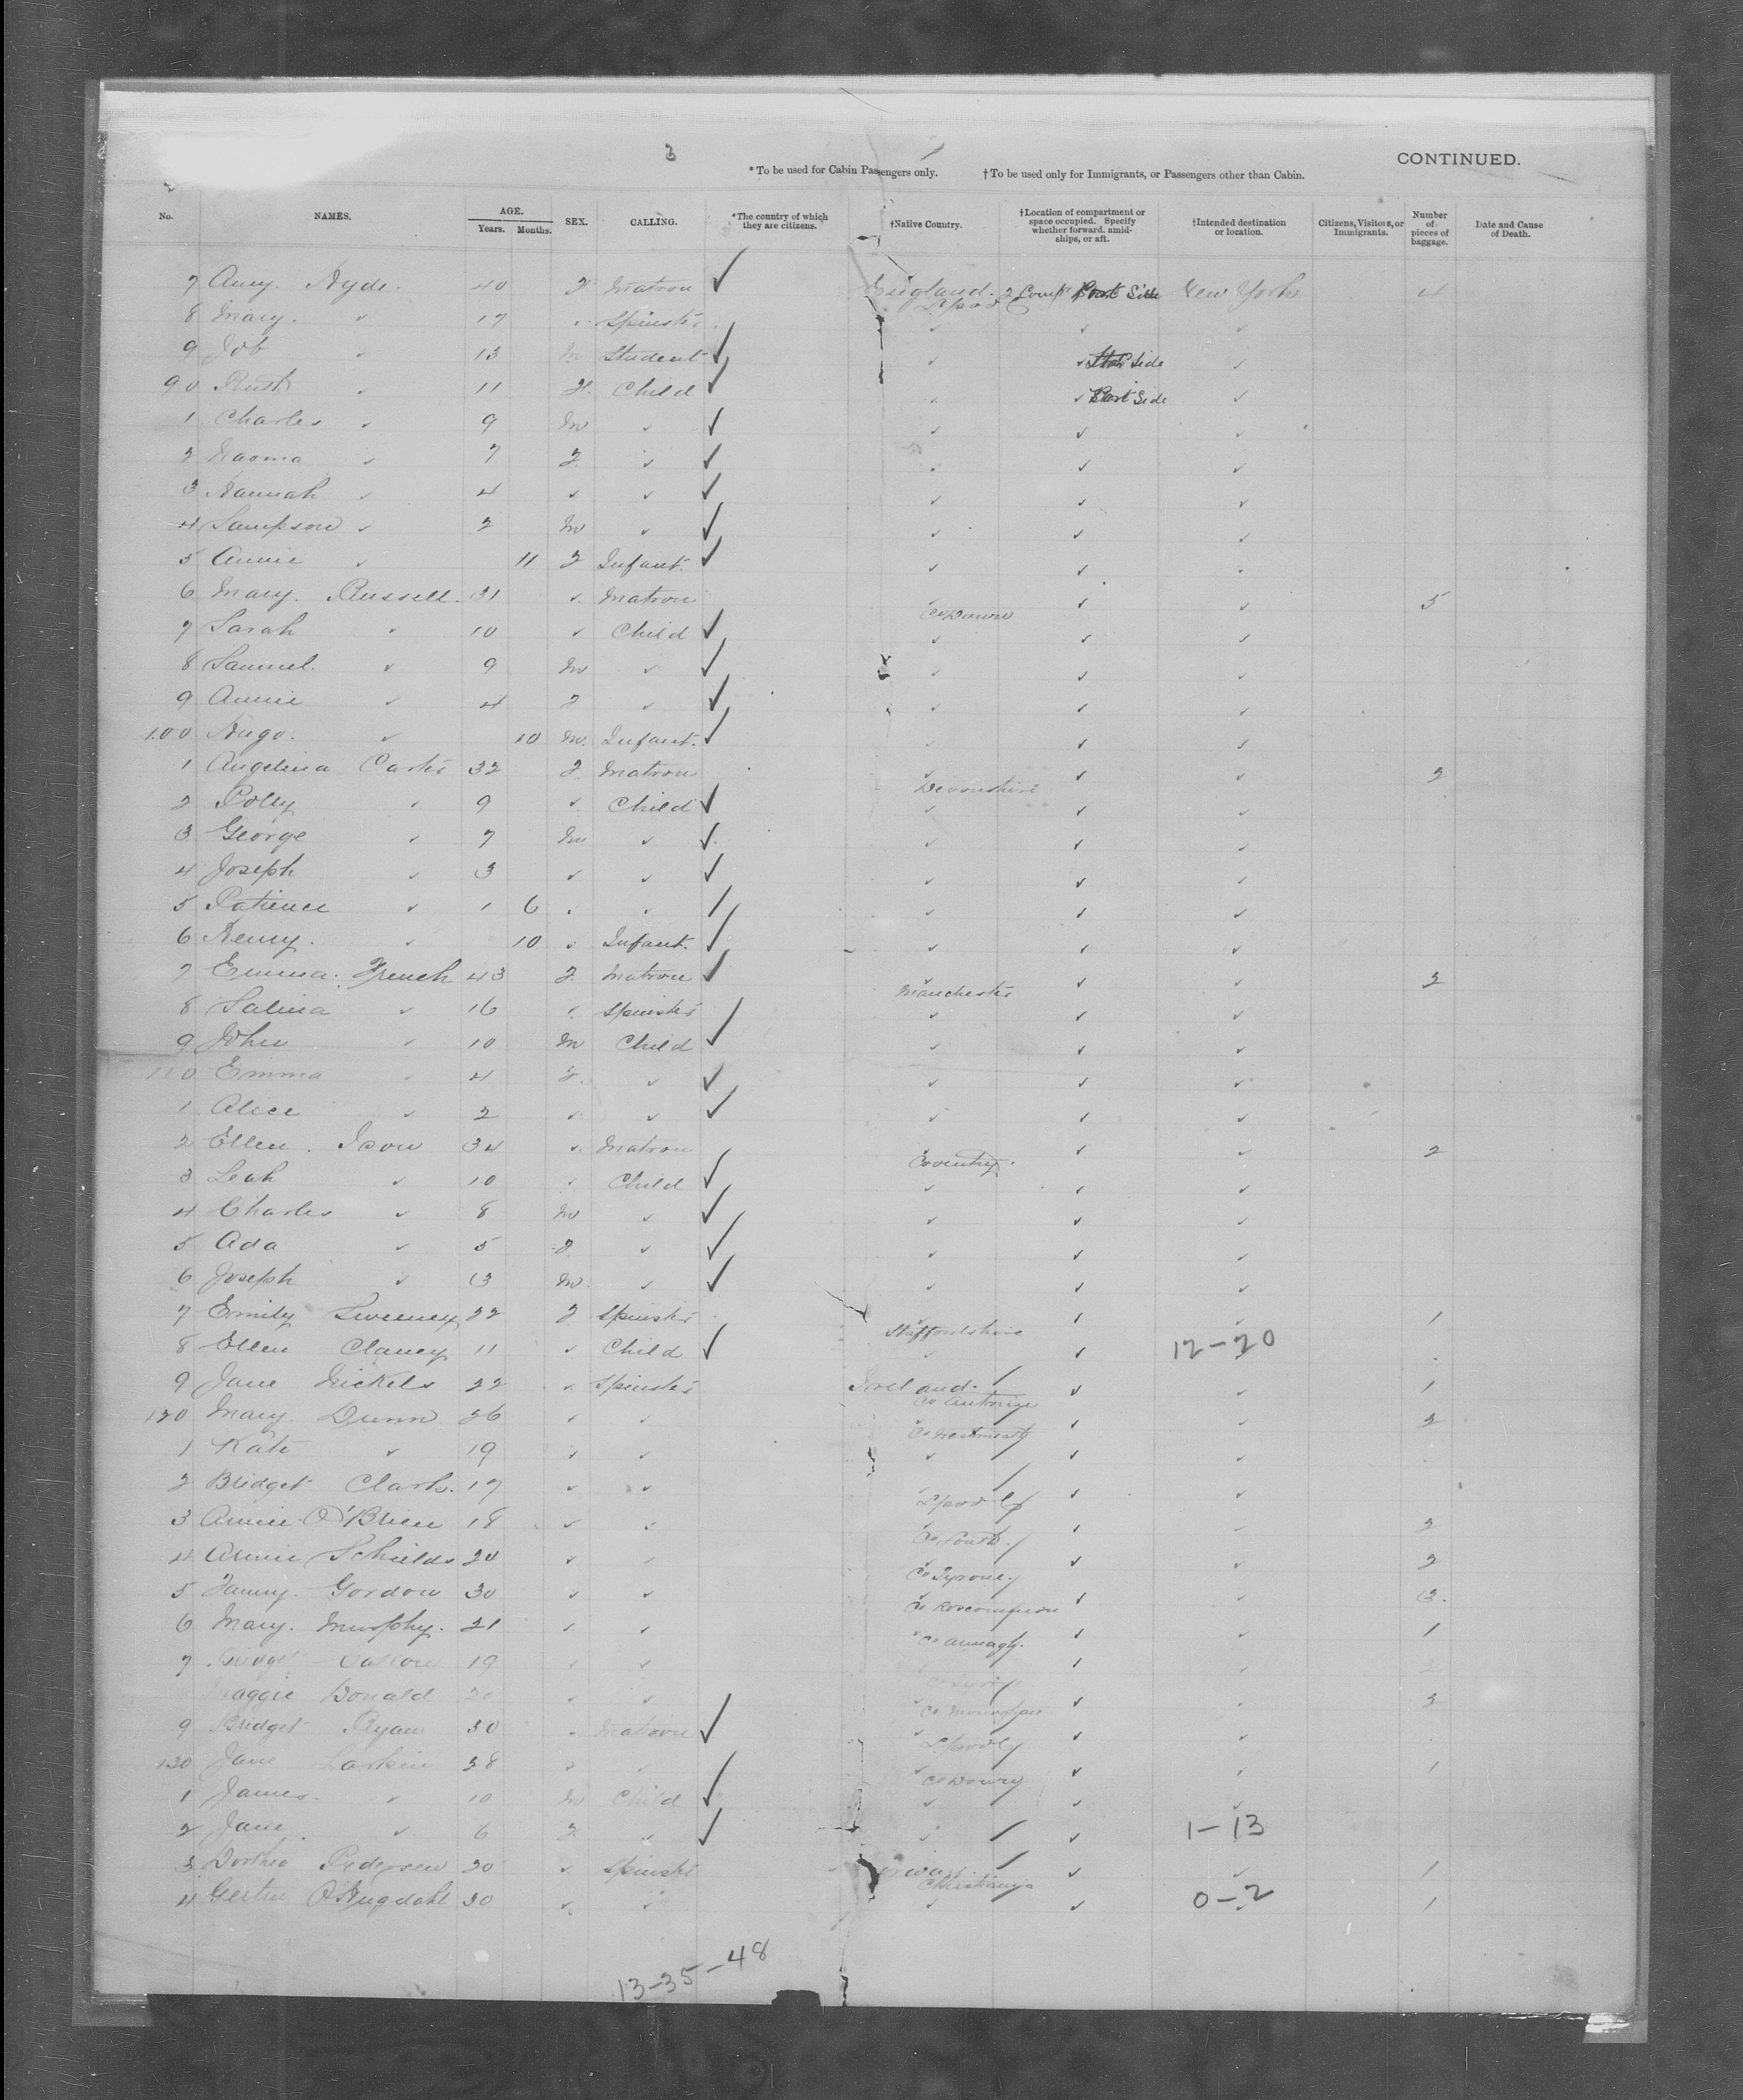 3
CONTINUED.
*To be used for Cabin Passengers only. †To be used only for Immigrants, or Passengers other than Cabin.
No. NAMES. AGE. Years. Months. SEX. CALLING. *The country of which they are citizens. †Native Country. †Location of compartment or space occupied. Specify whether forward, amidships, or aft. †Intended destination or location. Citizens, Visitors, or Immigrants. Number of pieces of baggage. Date and Cause of Death.
7 Amy Hyde. 40 F Matron ✓ England. L'pool 2 Comp't Port Side New York 4
8 Mary. ✓ 17 ✓ Spinster ✓ ✓ ✓
9 Job ✓ 13 M Student ✓ ✓ ✓ Side ✓
90 Ruth ✓ 11 F. Child ✓ ✓ ✓ Port Side ✓
1 Charles ✓ 9 M ✓ ✓ ✓ ✓ ✓
2 Naoma ✓ 7 F ✓ ✓ ✓ ✓ ✓
3 Hannah ✓ 4 ✓ ✓ ✓ ✓ ✓ ✓
4 Sampson ✓ 2 M ✓ ✓ ✓ ✓ ✓
5 Annie ✓ 11 F Infant. ✓ ✓ ✓ ✓
6 Mary. Russell. 31 ✓ Matron Co Down ✓ ✓ 5
7 Sarah ✓ 10 ✓ Child ✓ ✓ ✓ ✓
8 Samuel. ✓ 9 M ✓ ✓ ✓ ✓ ✓
9 Annie ✓ 4 F ✓ ✓ ✓ ✓ ✓
100 Hugo. ✓ 10 M. Infant. ✓ ✓ ✓ ✓
1 Angelina Carter 32 F Matron Devonshire ✓ ✓ 2
2 Polly ✓ 9 ✓ Child ✓ ✓ ✓ ✓
3 George ✓ 7 M ✓ ✓ ✓ ✓ ✓
4 Joseph ✓ 3 ✓ ✓ ✓ ✓ ✓ ✓
5 Patience ✓ 1 6 ✓ ✓ / ✓ ✓ ✓
6 Henry. ✓ 10 ✓ Infant. ✓ ✓ ✓ ✓
7 Emma. French 43 F. Matron ✓ Manchester ✓ ✓ 2
8 Salina ✓ 16 ✓ Spinster ✓ ✓ ✓
9 John ✓ 10 M Child ✓ ✓ ✓ ✓
110 Emma ✓ 4 F. ✓ ✓ ✓ ✓ ✓
1 Alice ✓ 2 ✓ ✓ ✓ ✓ ✓ ✓
2 Ellen. Ison 34 ✓ Matron Coventry. ✓ ✓ 2
3 Leah ✓ 10 ✓ Child ✓ ✓ ✓ ✓
4 Charles ✓ 8 M ✓ ✓ ✓ ✓ ✓
5 Ada ✓ 5 F ✓ ✓ ✓ ✓ ✓
6 Joseph ✓ 3 M. ✓ ✓ ✓ ✓ ✓
7 Emily Sweeney 22 F Spinster Staffordshire ✓ ✓ 1
8 Ellen Clancy 11 ✓ Child ✓ ✓ ✓ 12-20
9 Jane Nickels 22 ✓ Spinster Ireland. Co Antrim ✓ ✓ 1
120 Mary. Dunn 26 ✓ ✓ Co Westmeath ✓ ✓ 2
1 Kate ✓ 19 ✓ ✓ ✓ ✓ ✓
2 Bridget Clark. 17 ✓ ✓ L'pool ✓ ✓
3 Annie O'Brien 18 ✓ ✓ Co Louth. ✓ ✓ 2
4 Annie Schields 20 ✓ ✓ Co Tyrone ✓ ✓ 2
5 Fanny. Gordon 30 ✓ ✓ Co Roscommon ✓ ✓ 3.
6 Mary. Murphy. 21 ✓ ✓ Co Armagh. ✓ ✓ 1
7 Bridget 19 ✓ ✓ ✓ ✓
Maggie Donald 20 ✓ ✓ Co Monaghan ✓ ✓ 2
9 Bridget Ryan 30 ✓ Matron ✓ L'pool ✓ ✓
130 Jane Larkin 38 ✓ ✓ Co ✓ ✓ 1
1 James. ✓ 10 M Child ✓ ✓ ✓ ✓
2 Jane ✓ 6 F ✓ ✓ ✓ ✓ 1-13
3 Pedersen 20 ✓ Spinster Norway Christiania ✓ ✓ 1
4 20 ✓ ✓ ✓ ✓ 0-2 1
13-35-48